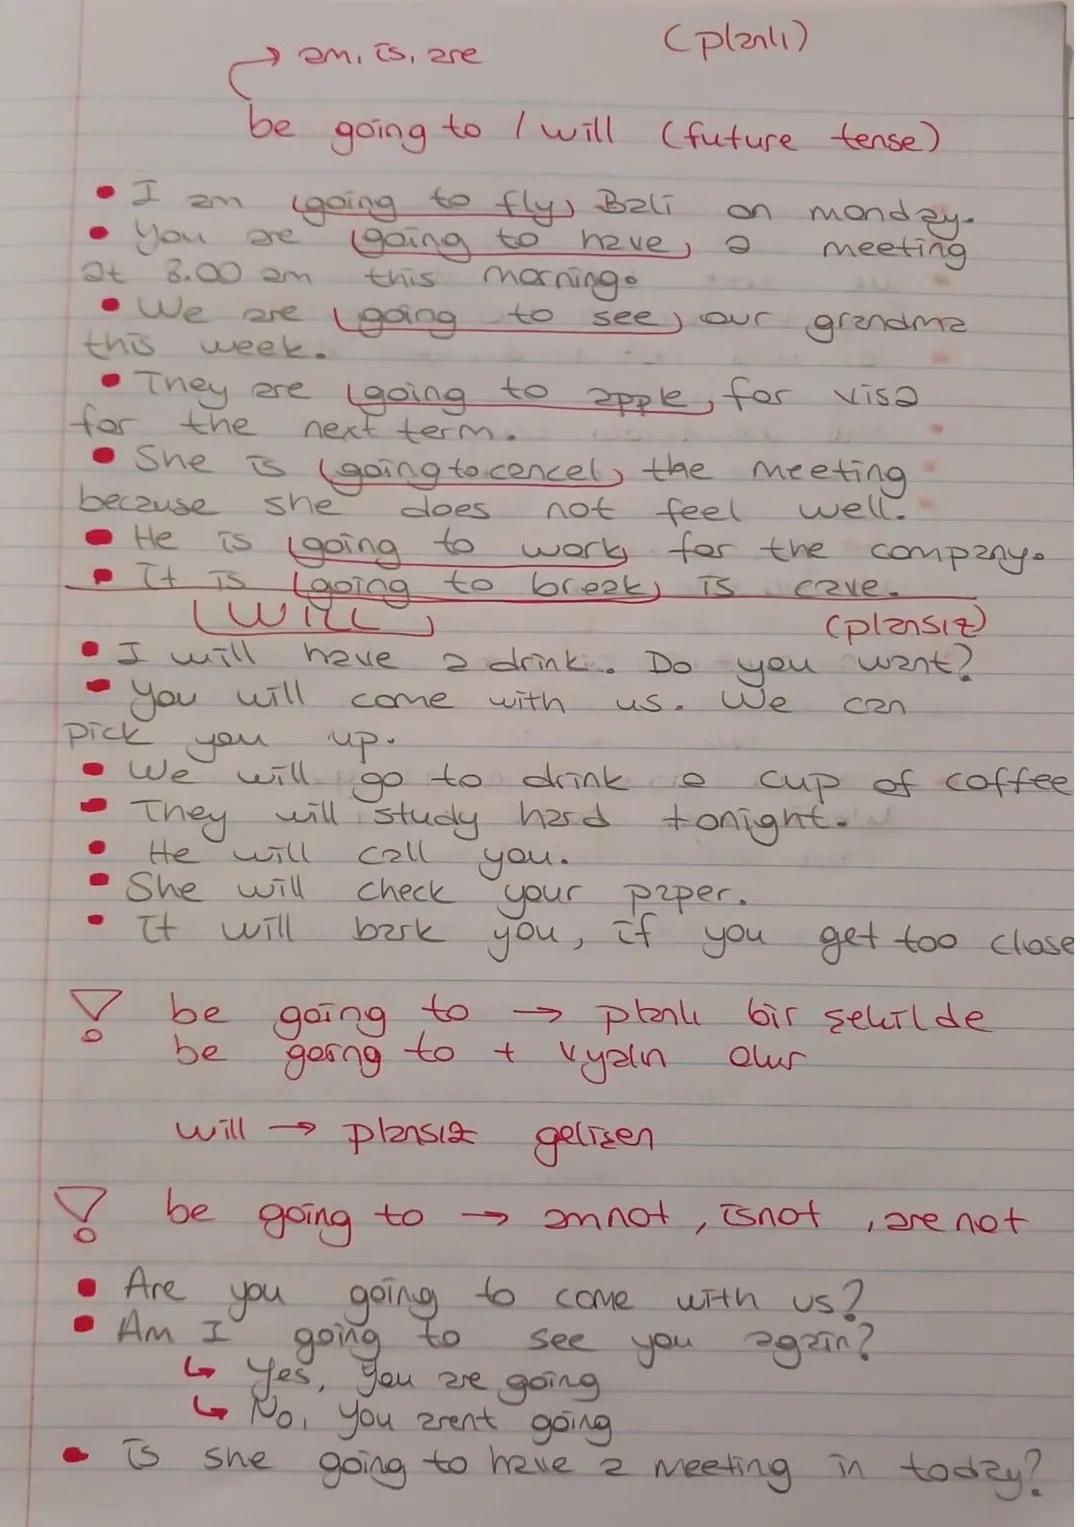 (planlı)
→ am, is, are
be going to / will (future tense)
• I am (going to fly) Bali on monday.
• You are (going to have) a meeting
at 8.00 am this morning.
• We are (going to see) our grandma
this week.
• They are (going to apple) for visa
for the next term.
• She is (going to cencel) the meeting
because she does not feel well.
• He is (going to work) for the company.
• It is (going to break) is cave.
(WILL) (plansız)
• I will have a drink. Do you want?
• You will come with us. We can
pick you up.
• We will go to drink a cup of coffee
• They will study hard tonight.
• He will call you.
• She will check your paper.
• It will bark you, if you get too close
! be going to → planlı bir şekilde
be going to + Vyalın olur
will → plansız gelişen
! be going to → am not, is not, are not
• Are you going to come with us?
• Am I going to see you again?
↳ Yes, you are going
↳ No, you arent going
• is she going to have a meeting in today?